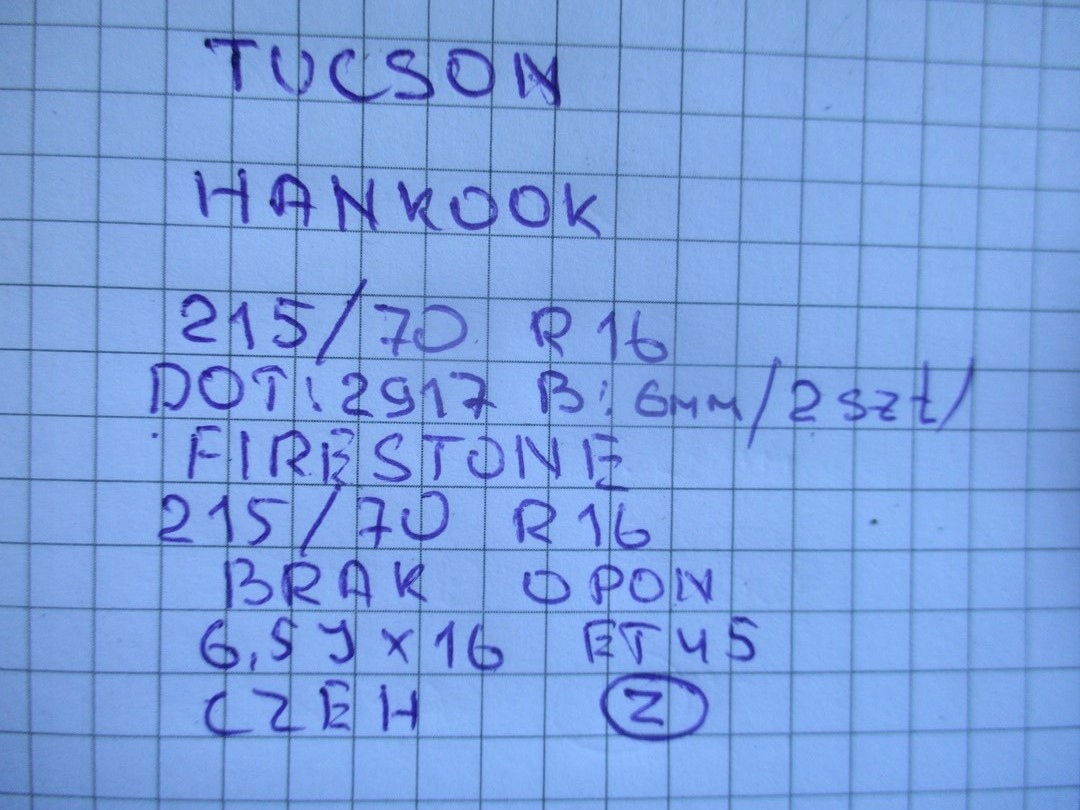 TUCSON
HANKOOK
215/70 R16
DOT:2917 B:6mm/2szt/
FIRESTONE
215/70 R16
BRAK OPON
6,5J x 16 ET45
CZEH Z